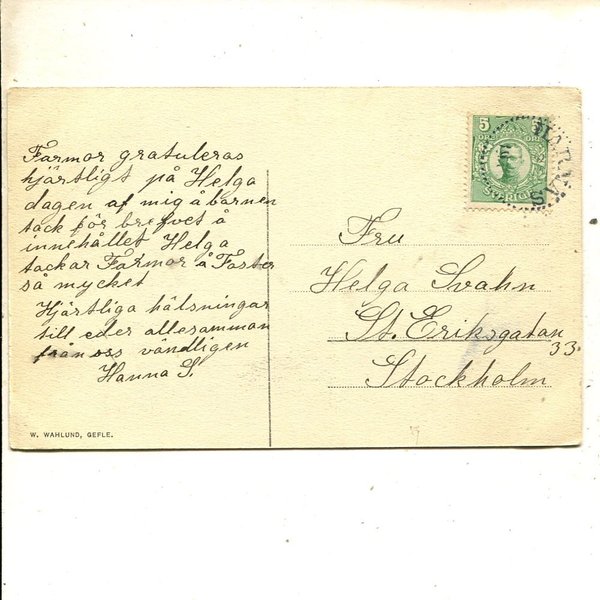 Farmor gratuleras
hjärtligt på Helga
dagen af mig å barnen
tack för brefvet å
innehållet Helga
tackar Farmor å Faster
så mycket
Hjärtliga hälsningar
till eder allesamman
från oss vändligen
Hanna S.
W. WAHLUND, GEFLE.
5
SVERIGE
Fru
Helga Svahn
St. Eriksgatan
33.
Stockholm